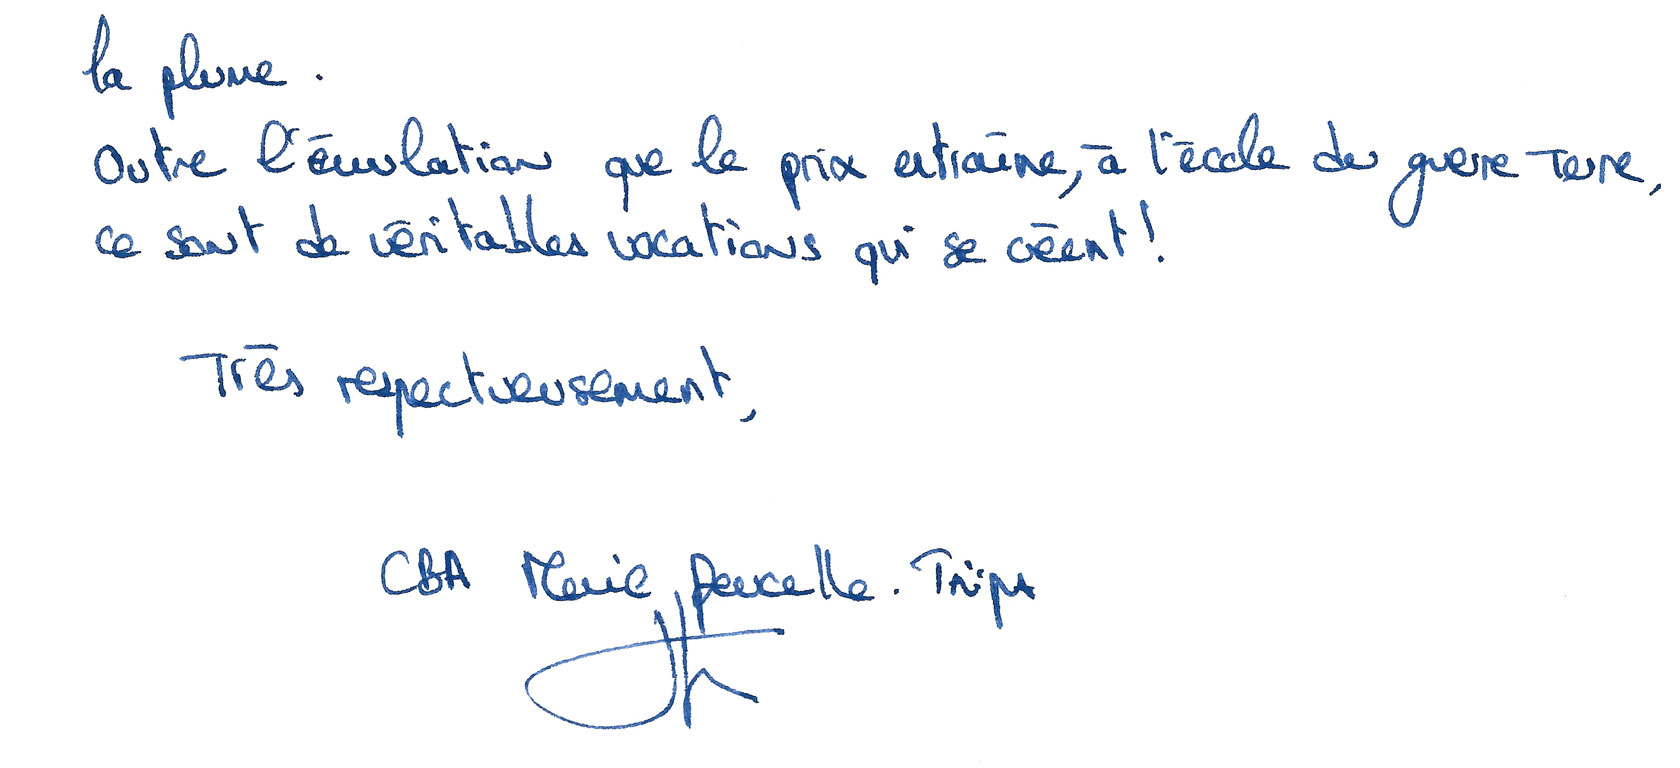 la plume.
Outre l'émulation que le prix entraîne, à l'école de guerre-Terre,
ce sont de véritables vocations qui se créent !
Très respectueusement,
CBA Marie